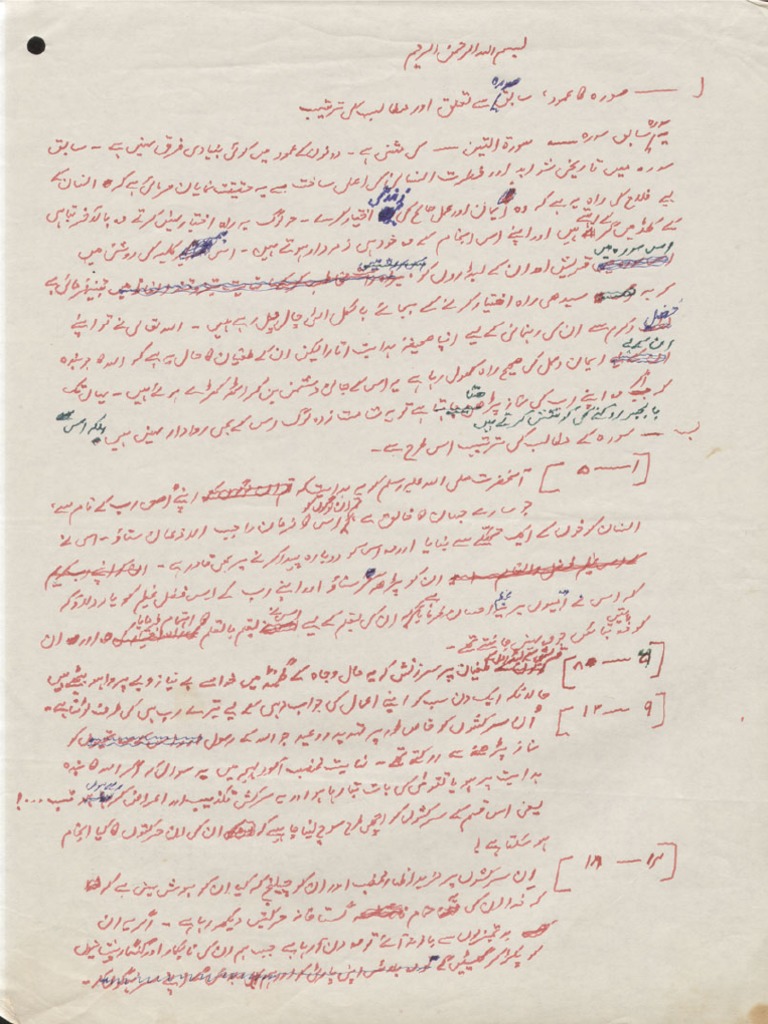 بسم اللہ الرحمٰن الرحیم
ا — سورہ کا عمود، سابق سورہ سے تعلق اور مطالب کی ترتیب
یہ سورہ سابق سورہ — سورۃ التین — کی مثنیٰ ہے - دونوں کے عمود میں کوئی بنیادی فرق نہیں ہے - سابق
سورہ میں تاریخی شواہد اور فطرت انسانی کی اعلیٰ ساخت سے یہ حقیقت نمایاں فرمائی ہے کہ انسان کے
لیے فلاح کی راہ یہ ہے کہ وہ ایمان اور عمل صالح کی زندگی اختیار کرے - جو لوگ یہ راہ اختیار نہیں کرتے وہ بالآخر تباہی
کے کھڈ میں گرتے ہیں اور اپنے اس انجام کے وہ خود ہی ذمہ دار ہوتے ہیں - اس کلیہ کی روشنی میں
اس سورہ میں قریش اور ان کے لیڈروں کو تنبیہ فرمائی ہے
کہ یہ سیدھی راہ اختیار کرنے کے بجائے بالکل الٹی چال چل رہے ہیں - اللہ تعالیٰ نے تو اپنے
فضل و کرم سے ان کی رہنمائی کے لیے اپنا صحیفۂ ہدایت اتارا لیکن ان کے طغیان کا حال یہ ہے کہ اللہ کا جو بندہ
ان کے لیے ایمان و عمل کی صحیح راہ کھول رہا ہے یہ اس کے جانی دشمن بن کر اٹھ کھڑے ہوئے ہیں - یہاں تک
کہ اگر وہ اپنے رب کی نماز پڑھنا چاہتا ہے تو یہ شامت زدہ لوگ اس کے بھی روادار نہیں ہیں بلکہ اس
کو بالجبر روکنے کی کوشش کرتے ہیں
ب — سورہ کے مطالب کی ترتیب اس طرح ہے -
[ ا — ۵ ] آنحضرت صلی اللہ علیہ وسلم کو یہ ہدایت کہ اپنے اس رب کے نام سے،
جو سارے جہان کا خالق ہے، قرآن لوگوں کو اس کا فرمان واجب الاذعان سناؤ - اس نے
انسان کو خون کے ایک تھکے سے بنایا اور وہ اس کو دوبارہ پیدا کرنے پر بھی قادر ہے -
ان کو پڑھ کر سناؤ اور اپنے رب کے اس فضل عظیم کو یاد دلاؤ کہ
کہ اس نے امیوں پر یہ عظیم احسان فرمایا کہ ان کی تعلیم کے لیے اس نے تعلیم بالقلم کا اہتمام فرمایا اور ان
کو وہ باتیں بتائیں جو وہ نہیں جانتے تھے -
[ ۶ — ۸ ] قریش کے طغیان پر سرزنش کہ یہ مال و جاہ کے گھمنڈ میں خدا سے بے نیاز و بے پروا ہو بیٹھے ہیں
حالانکہ ایک دن سب کو اپنے اعمال کی جواب دہی کے لیے تیرے رب ہی کی طرف لوٹنا ہے -
[ ۹ — ۱۴ ] اُن سرکشوں کو خاص طور پر تہدید و وعید جو اللہ کے رسول کو
نماز پڑھنے سے روکتے تھے - نہایت غضب آلود لہجہ میں یہ سوال کہ اگر اللہ کا بندہ
ہدایت پر ہو یا تقویٰ کی بات بتا رہا ہو اور یہ سرکش تکذیب اور اعراض کر رہا ہو تب ...!
یعنی اس قسم کے سرکشوں کو اچھی طرح سوچ لینا چاہیے کہ ان کی ان حرکتوں کا کیا انجام
ہو سکتا ہے!
[ ۱۵ — ۱۸ ] ان سرکشوں پر مزید اظہار غضب اور ان کو چیلنج کہ کیا ان کو ہوش نہیں ہے کہ
کہ خدا ان کی تمام گستاخانہ حرکتیں دیکھ رہا ہے - اگر یہ ان
بدتمیزیوں سے باز نہ آئے تو وہ دن آ رہا ہے جب ہم ان کی نابکار اور گنہگار پیشانیوں
کو پکڑ کر گھسیٹیں گے